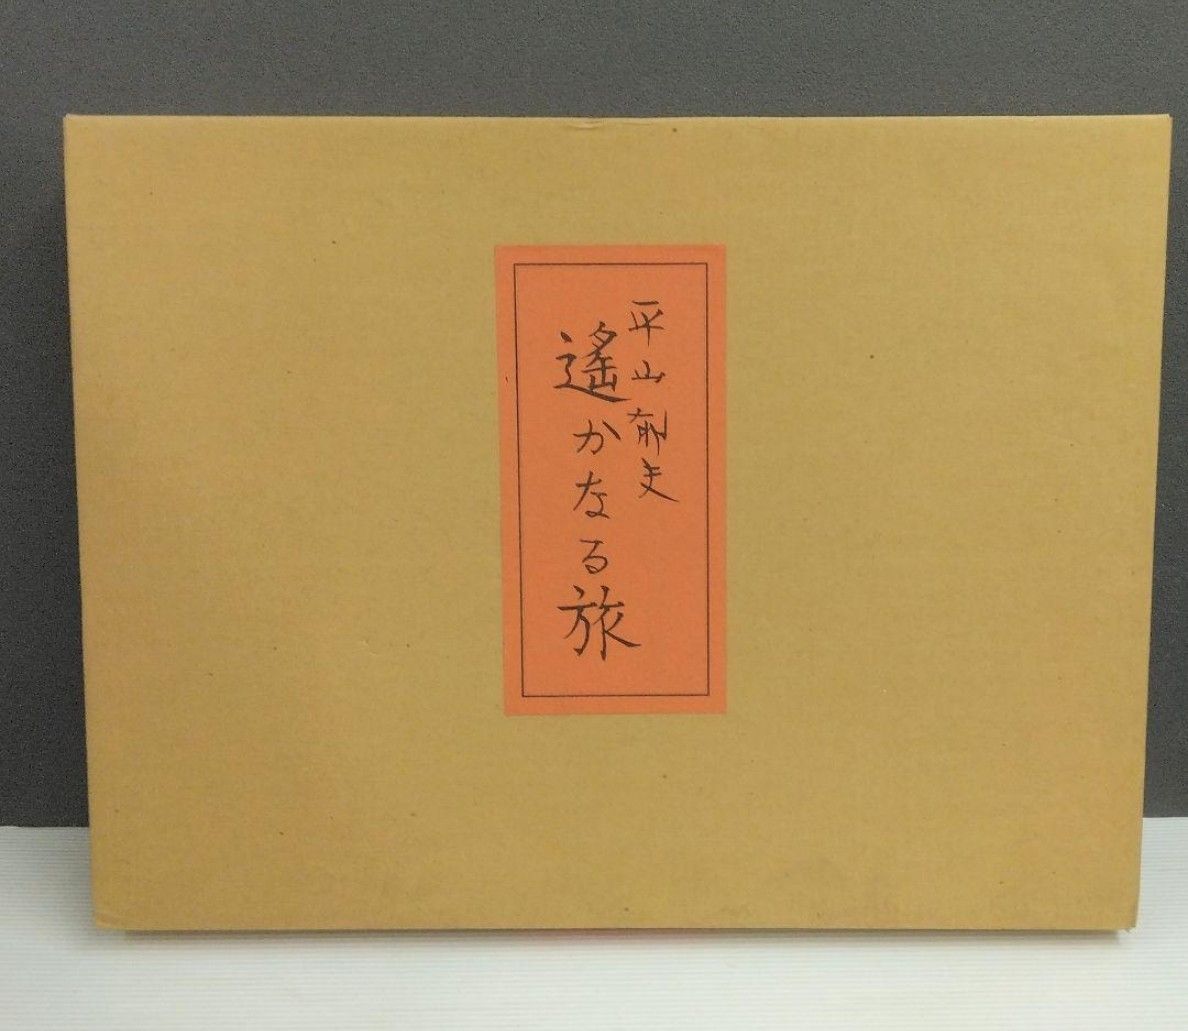 平山郁夫
遙かなる旅